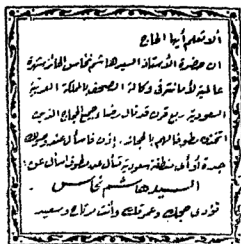 ألا تعلم أيها الحاج
ان حضرة الأستاذ السيد هاشم نحاس الحائز شهرة
عالمية لأمانته في وكالة الصحف بالمملكة العربية
السعودية ربع قرن قد نال رضا وجميع الحجاج الذين
اتخذوه مطوفا لهم بالحجاز. إذن فاسأل عند وصولك
جدة أو أي منطقة سعودية تسأل عند مطوف اسأل عن:
السيد هاشم نحاس
تؤدي حجك وعمرتك وأنت مرتاح وسعيد